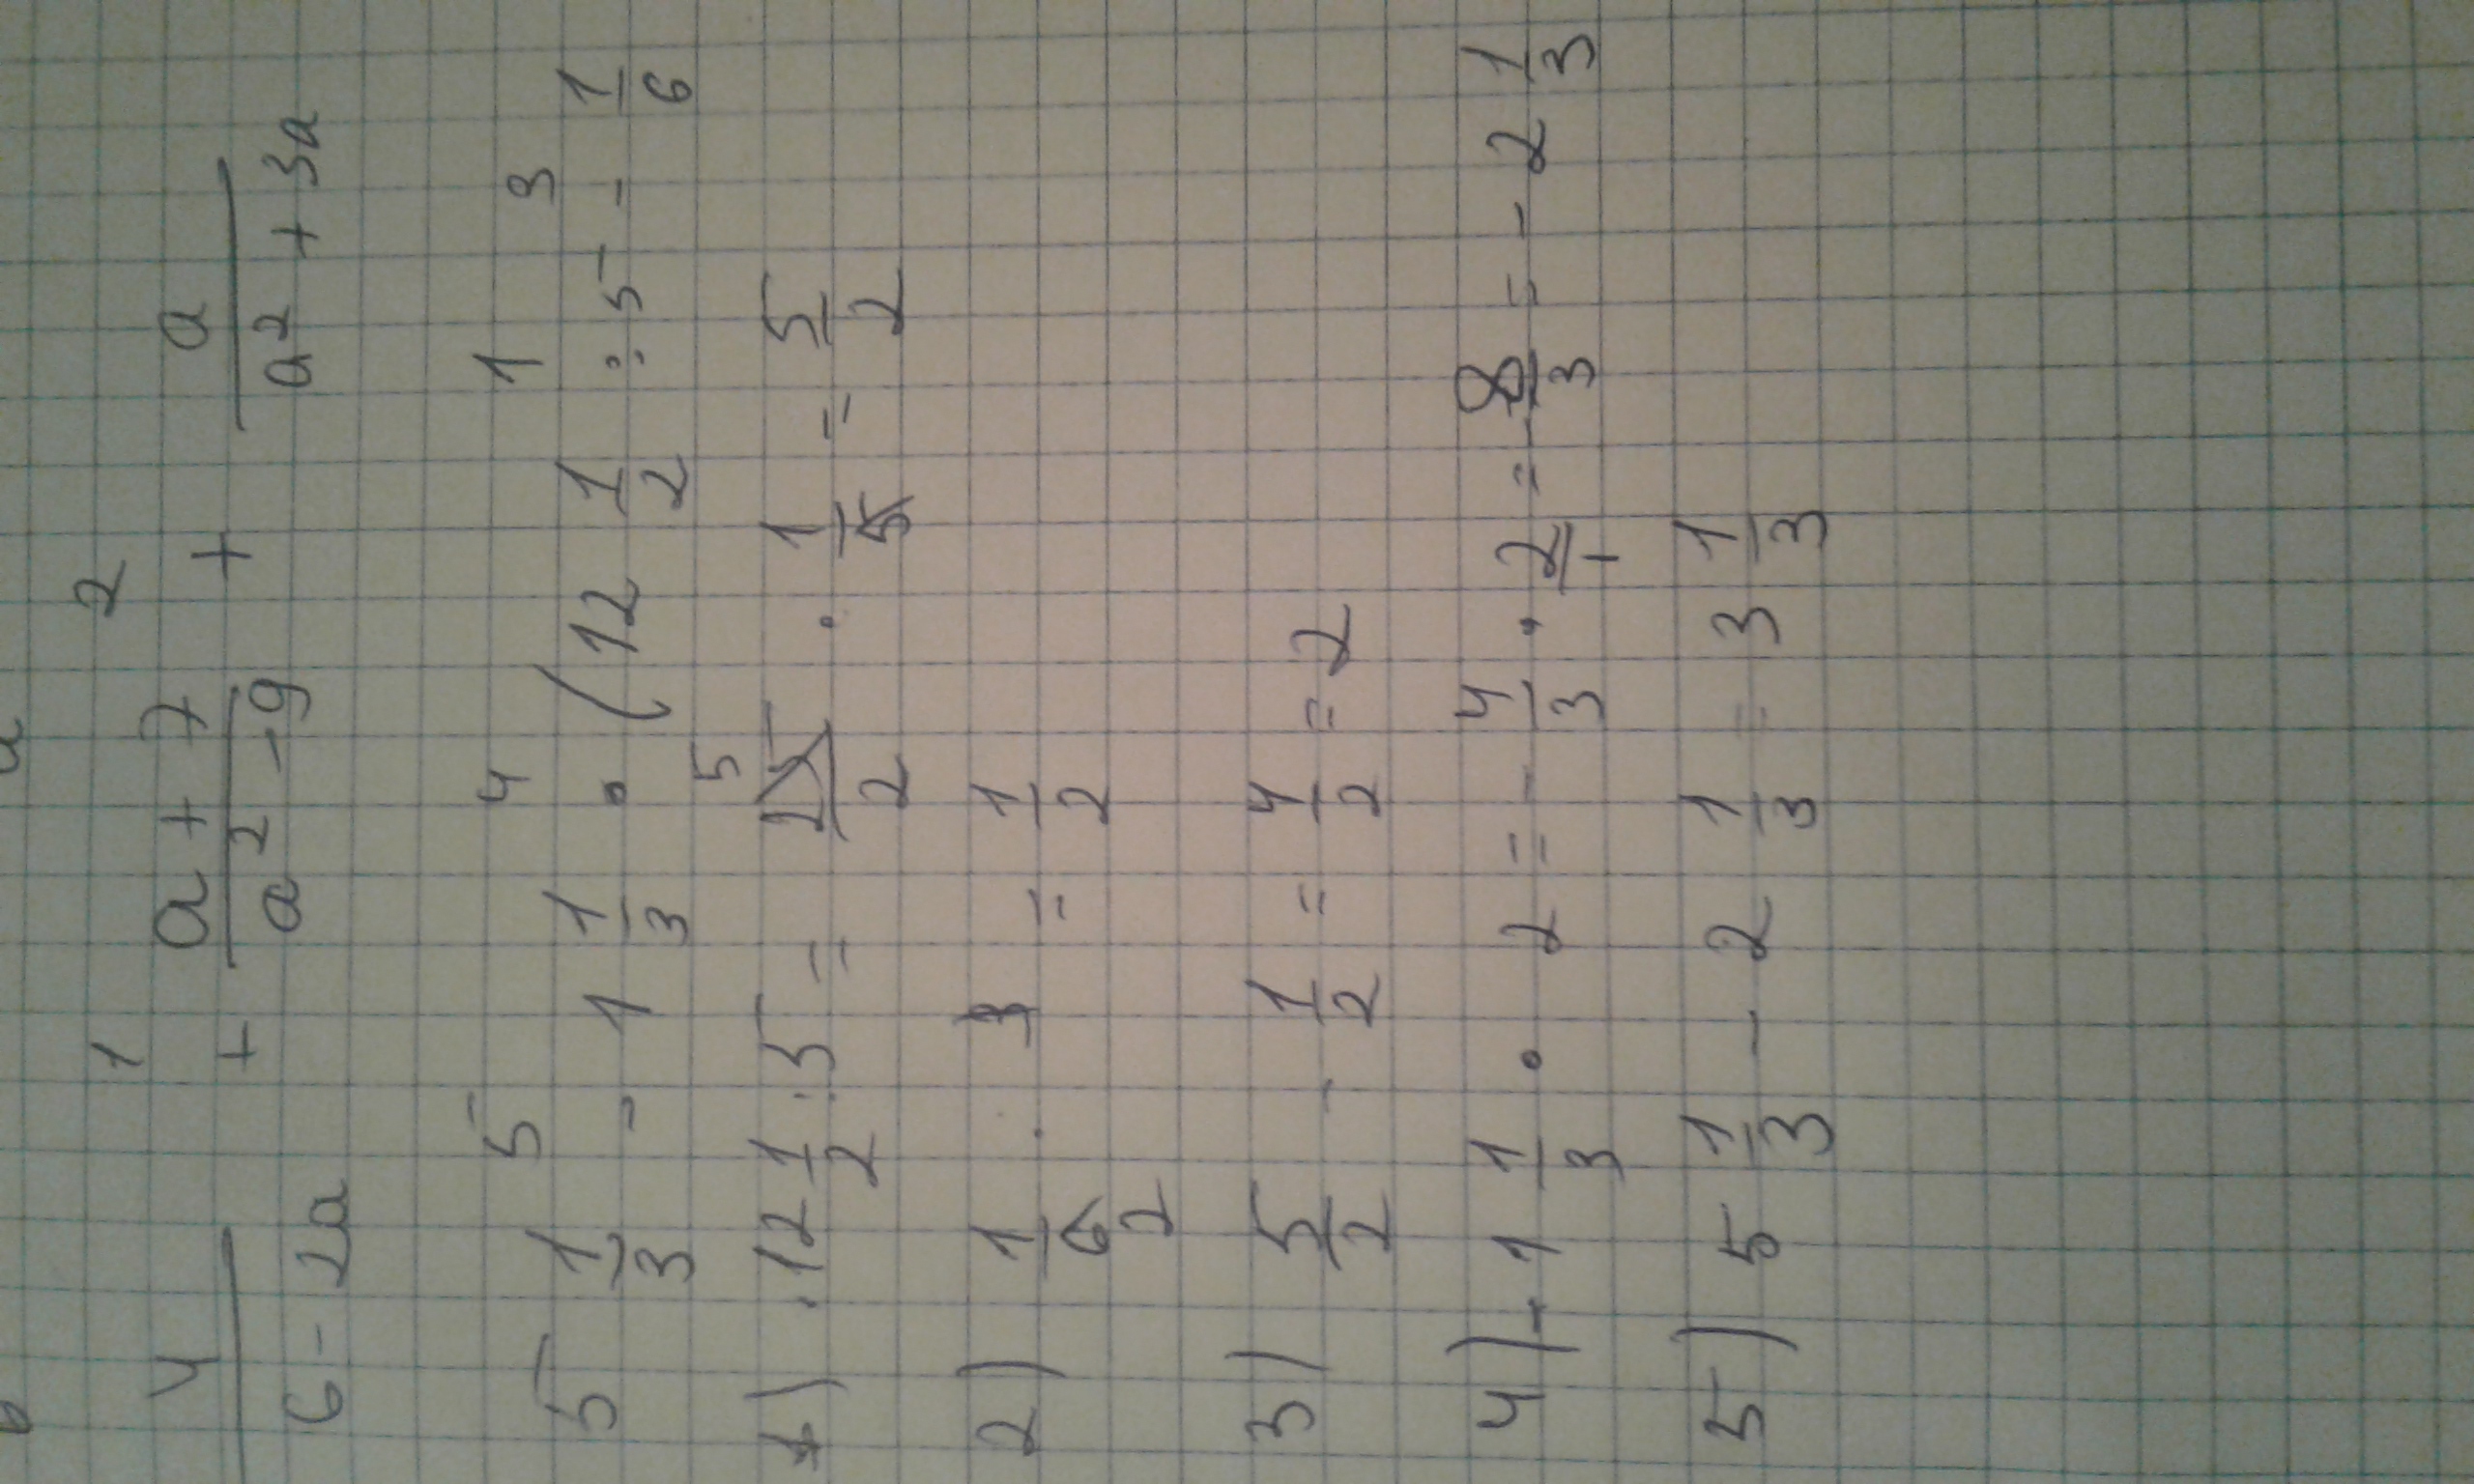 1 2
4/(6 - 2a) + (a + 7)/(a² - 9) + a/(a² + 3a)
5 4 1 3
5 1/3 - 1 1/3 · (12 1/2 : 5 - 1/6
1) 12 1/2 : 5 = 25/2 · 1/5 = 5/2
5
2) 1/6 · 3 = 1/2
2
3) 5/2 - 1/2 = 4/2 = 2
4) - 1 1/3 · 2 = - 4/3 · 2/1 = - 8/3 = - 2 1/3
5) 5 1/3 - 2 1/3 = 3 1/3